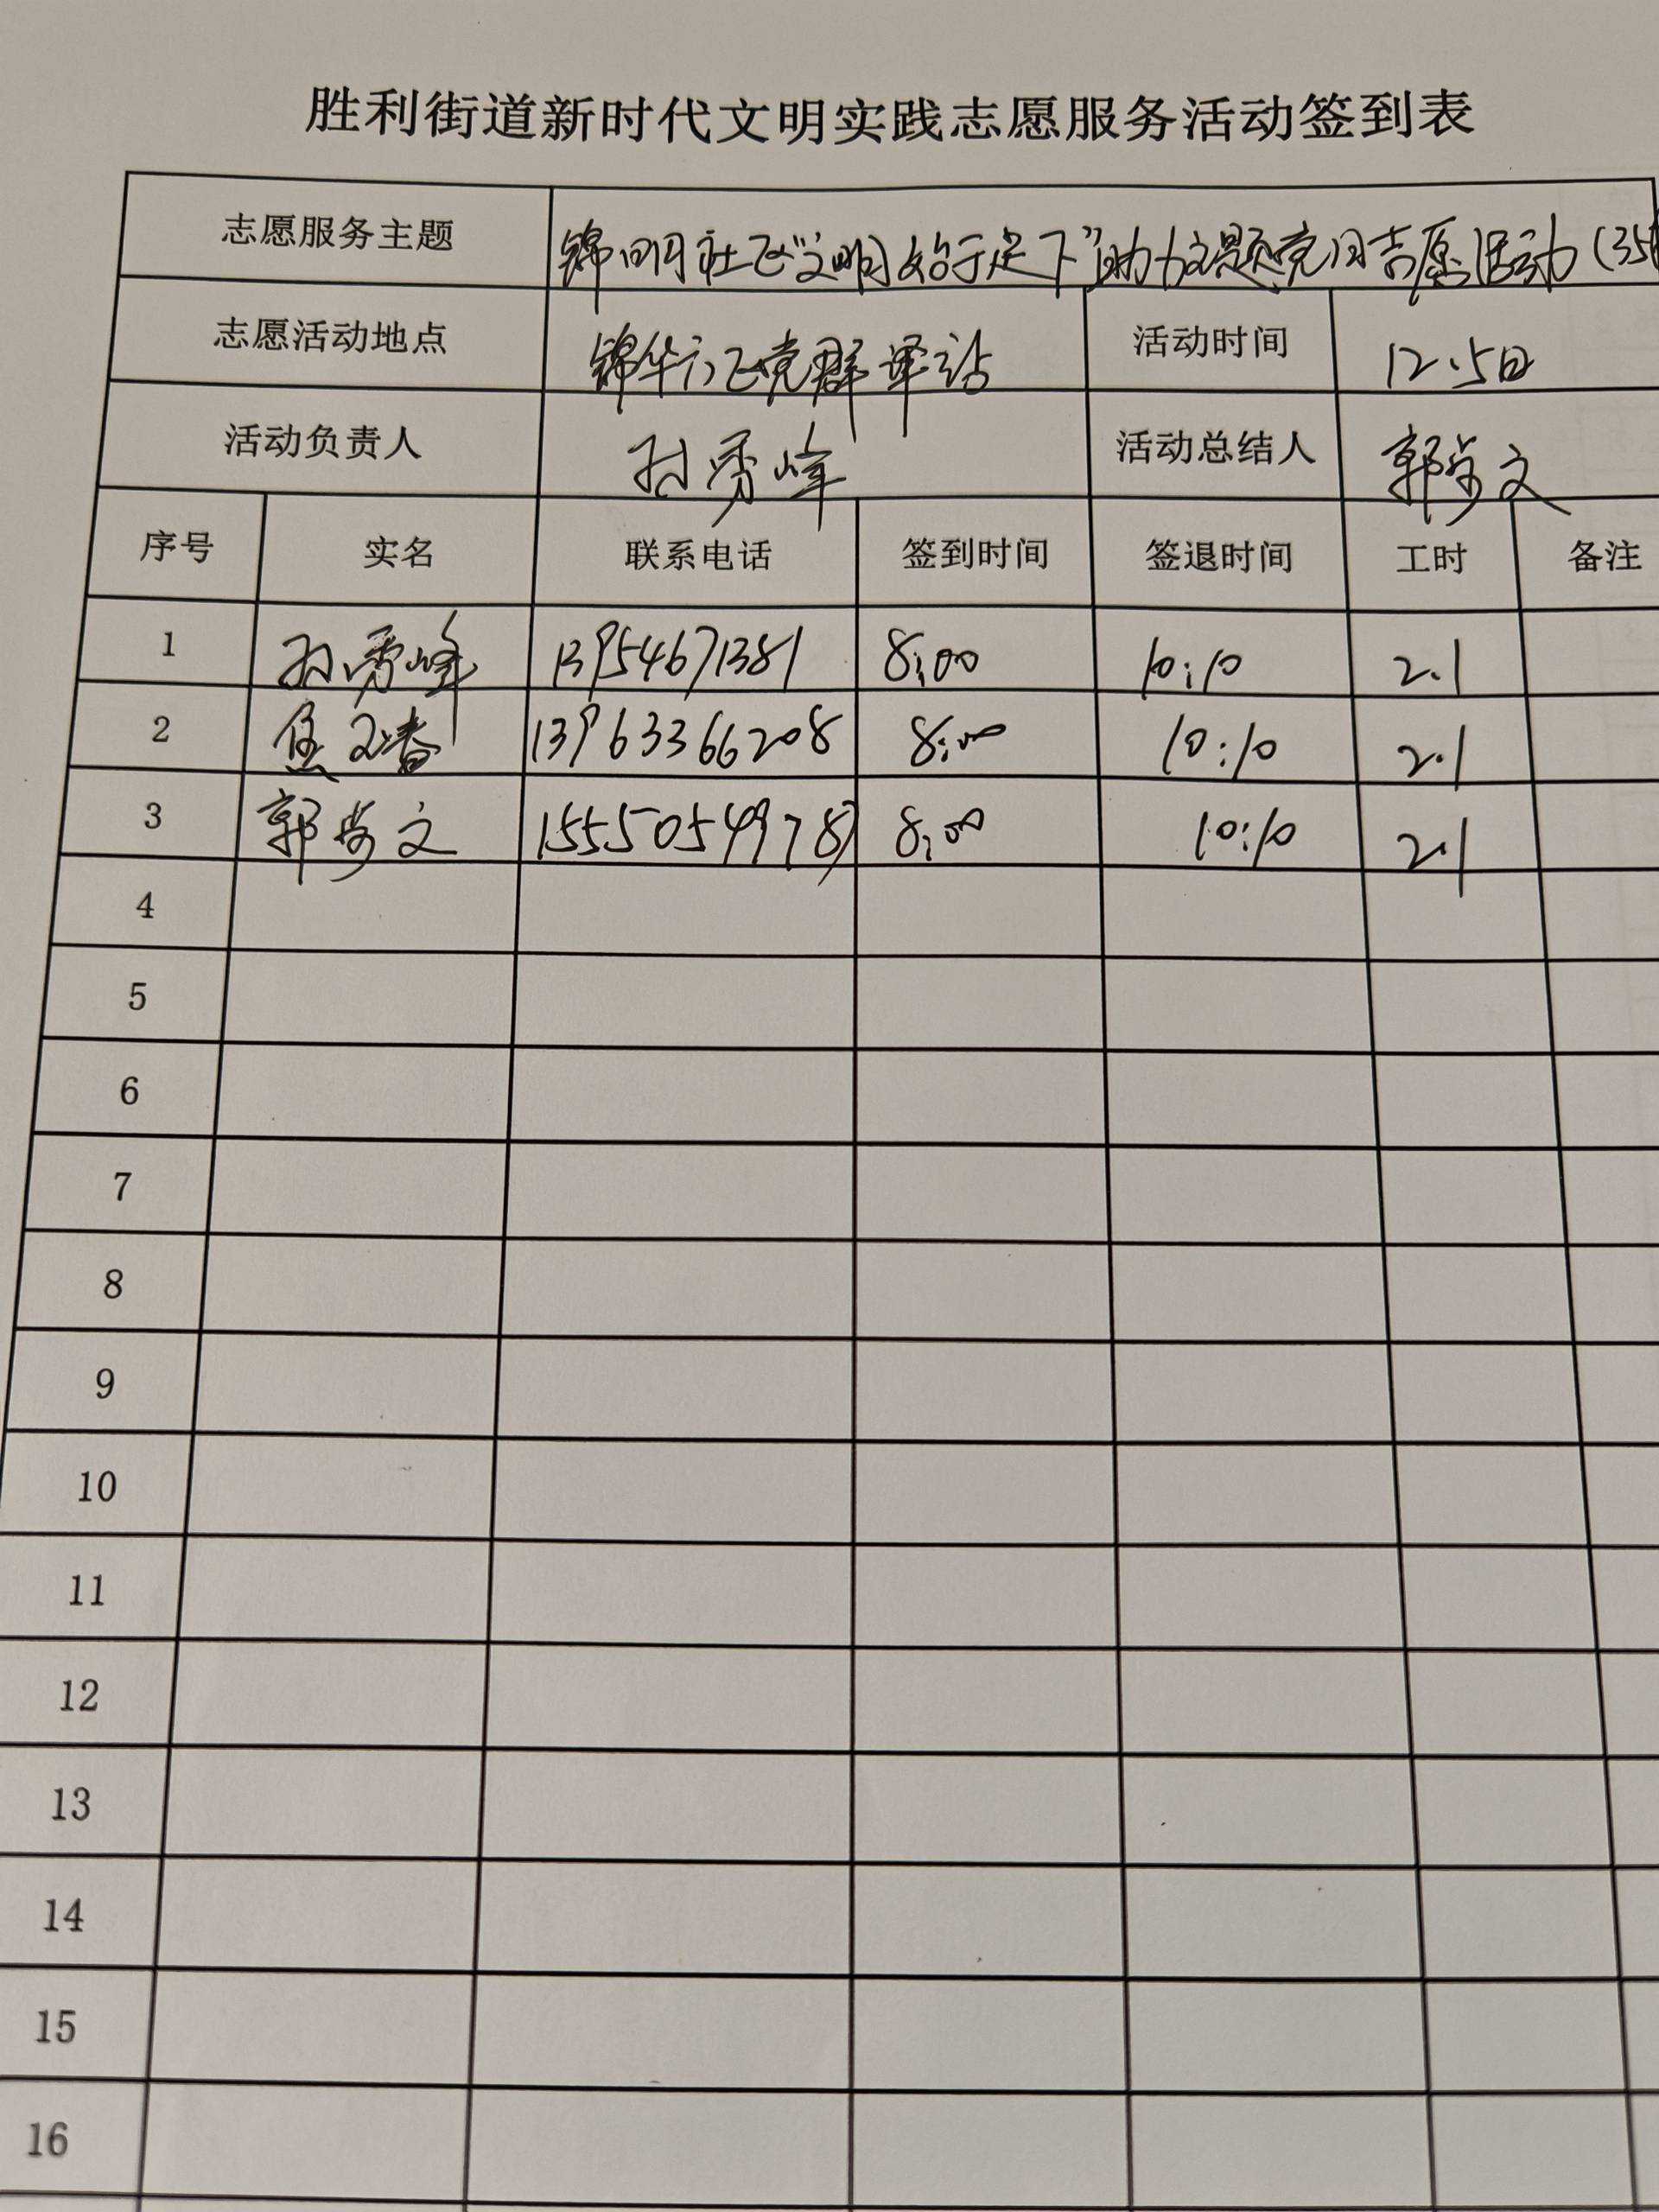 胜利街道新时代文明实践志愿服务活动签到表
志愿服务主题 锦明社区"文明始于足下"助力主题党日志愿活动(35
志愿活动地点 锦华社区党群驿站 活动时间 12.5日
活动负责人 孙秀峰 活动总结人 郭 文
序号 实名 联系电话 签到时间 签退时间 工时 备注
1 孙秀峰 13954671381 8:00 10:10 2.1
2 焦 春 13963366208 8:00 10:10 2.1
3 郭 文 15550549978 8:00 10:10 2.1
4
5
6
7
8
9
10
11
12
13
14
15
16